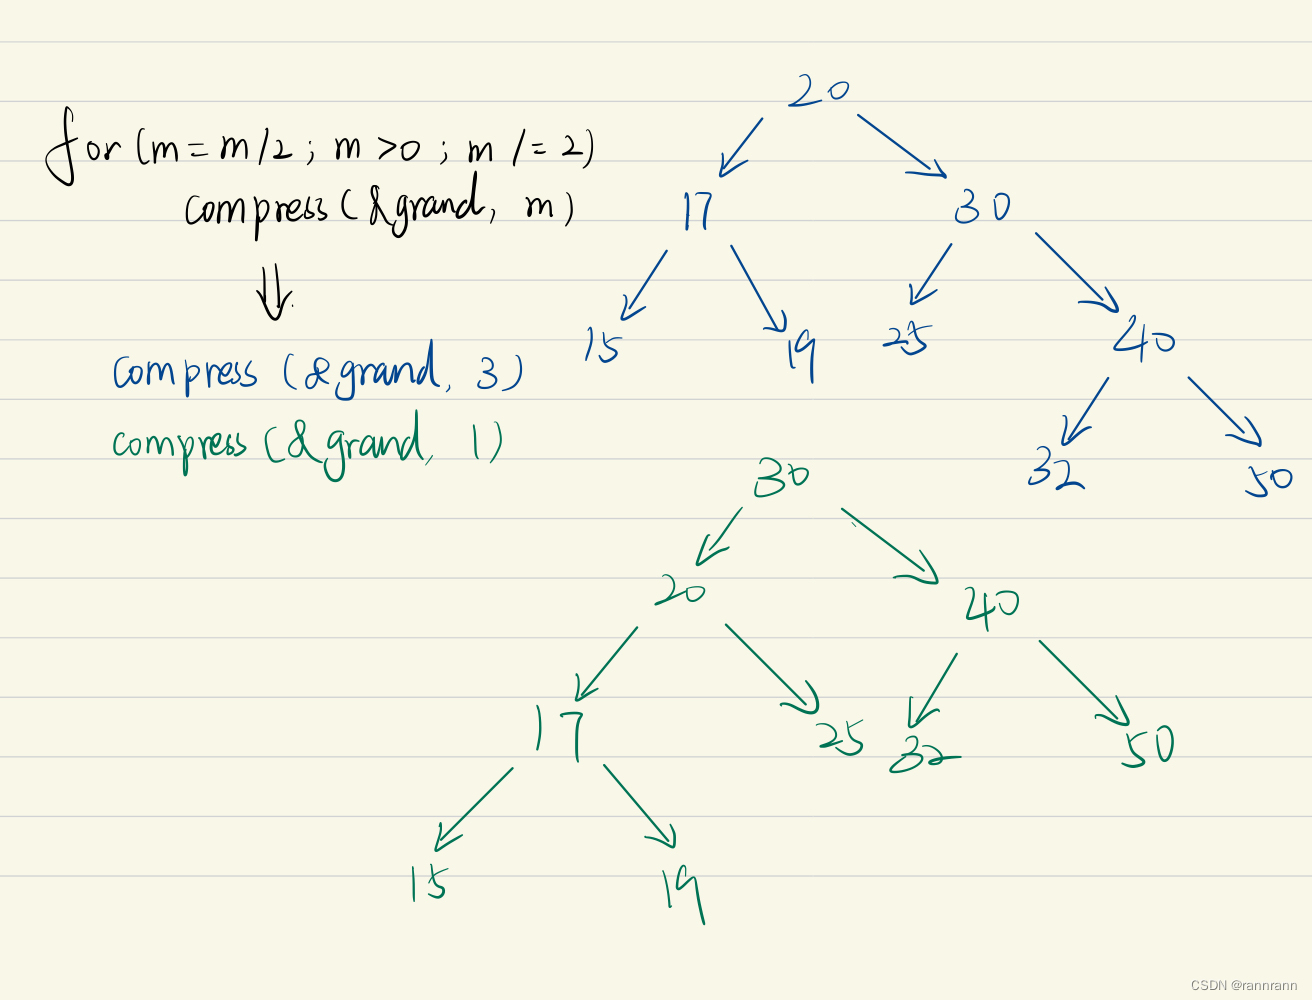 for (m = m/2 ; m >0 ; m /= 2)
compress (&grand, m)
compress (&grand, 3)
compress (&grand, 1)
20
17 30
15 19 25 40
32 50
30
20 40
17 25 32 50
15 19
CSDN @rannrann